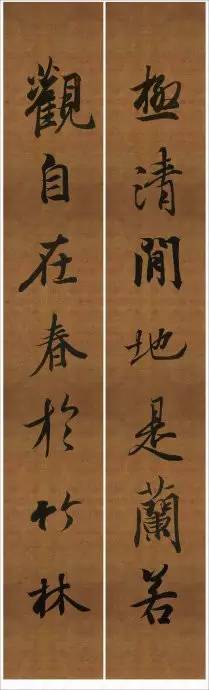 極清閒地是蘭若
觀自在春於竹林